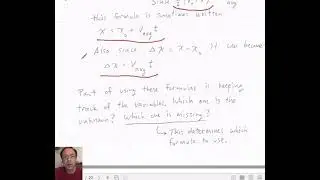 Since
this formula is sometimes written
x = x₀ + v_avg t
Also since Δx = x - x₀ it can become
Δx = v_avg t
Part of using these formulas is keeping
track of the variables, which one is the
unknown? Which one is missing?
↳ This determines which
formula to use.